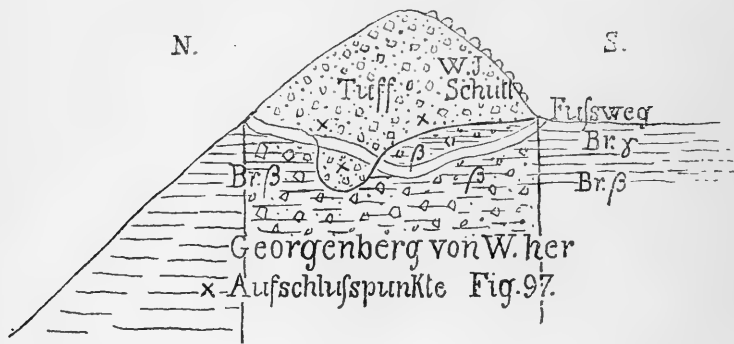 N. S.
W. J.
Tuff Schutt
Fuſsweg
Br. γ
β
Br. β β Br. β
Georgenberg von W. her
x Aufschluſspunkte Fig. 97.